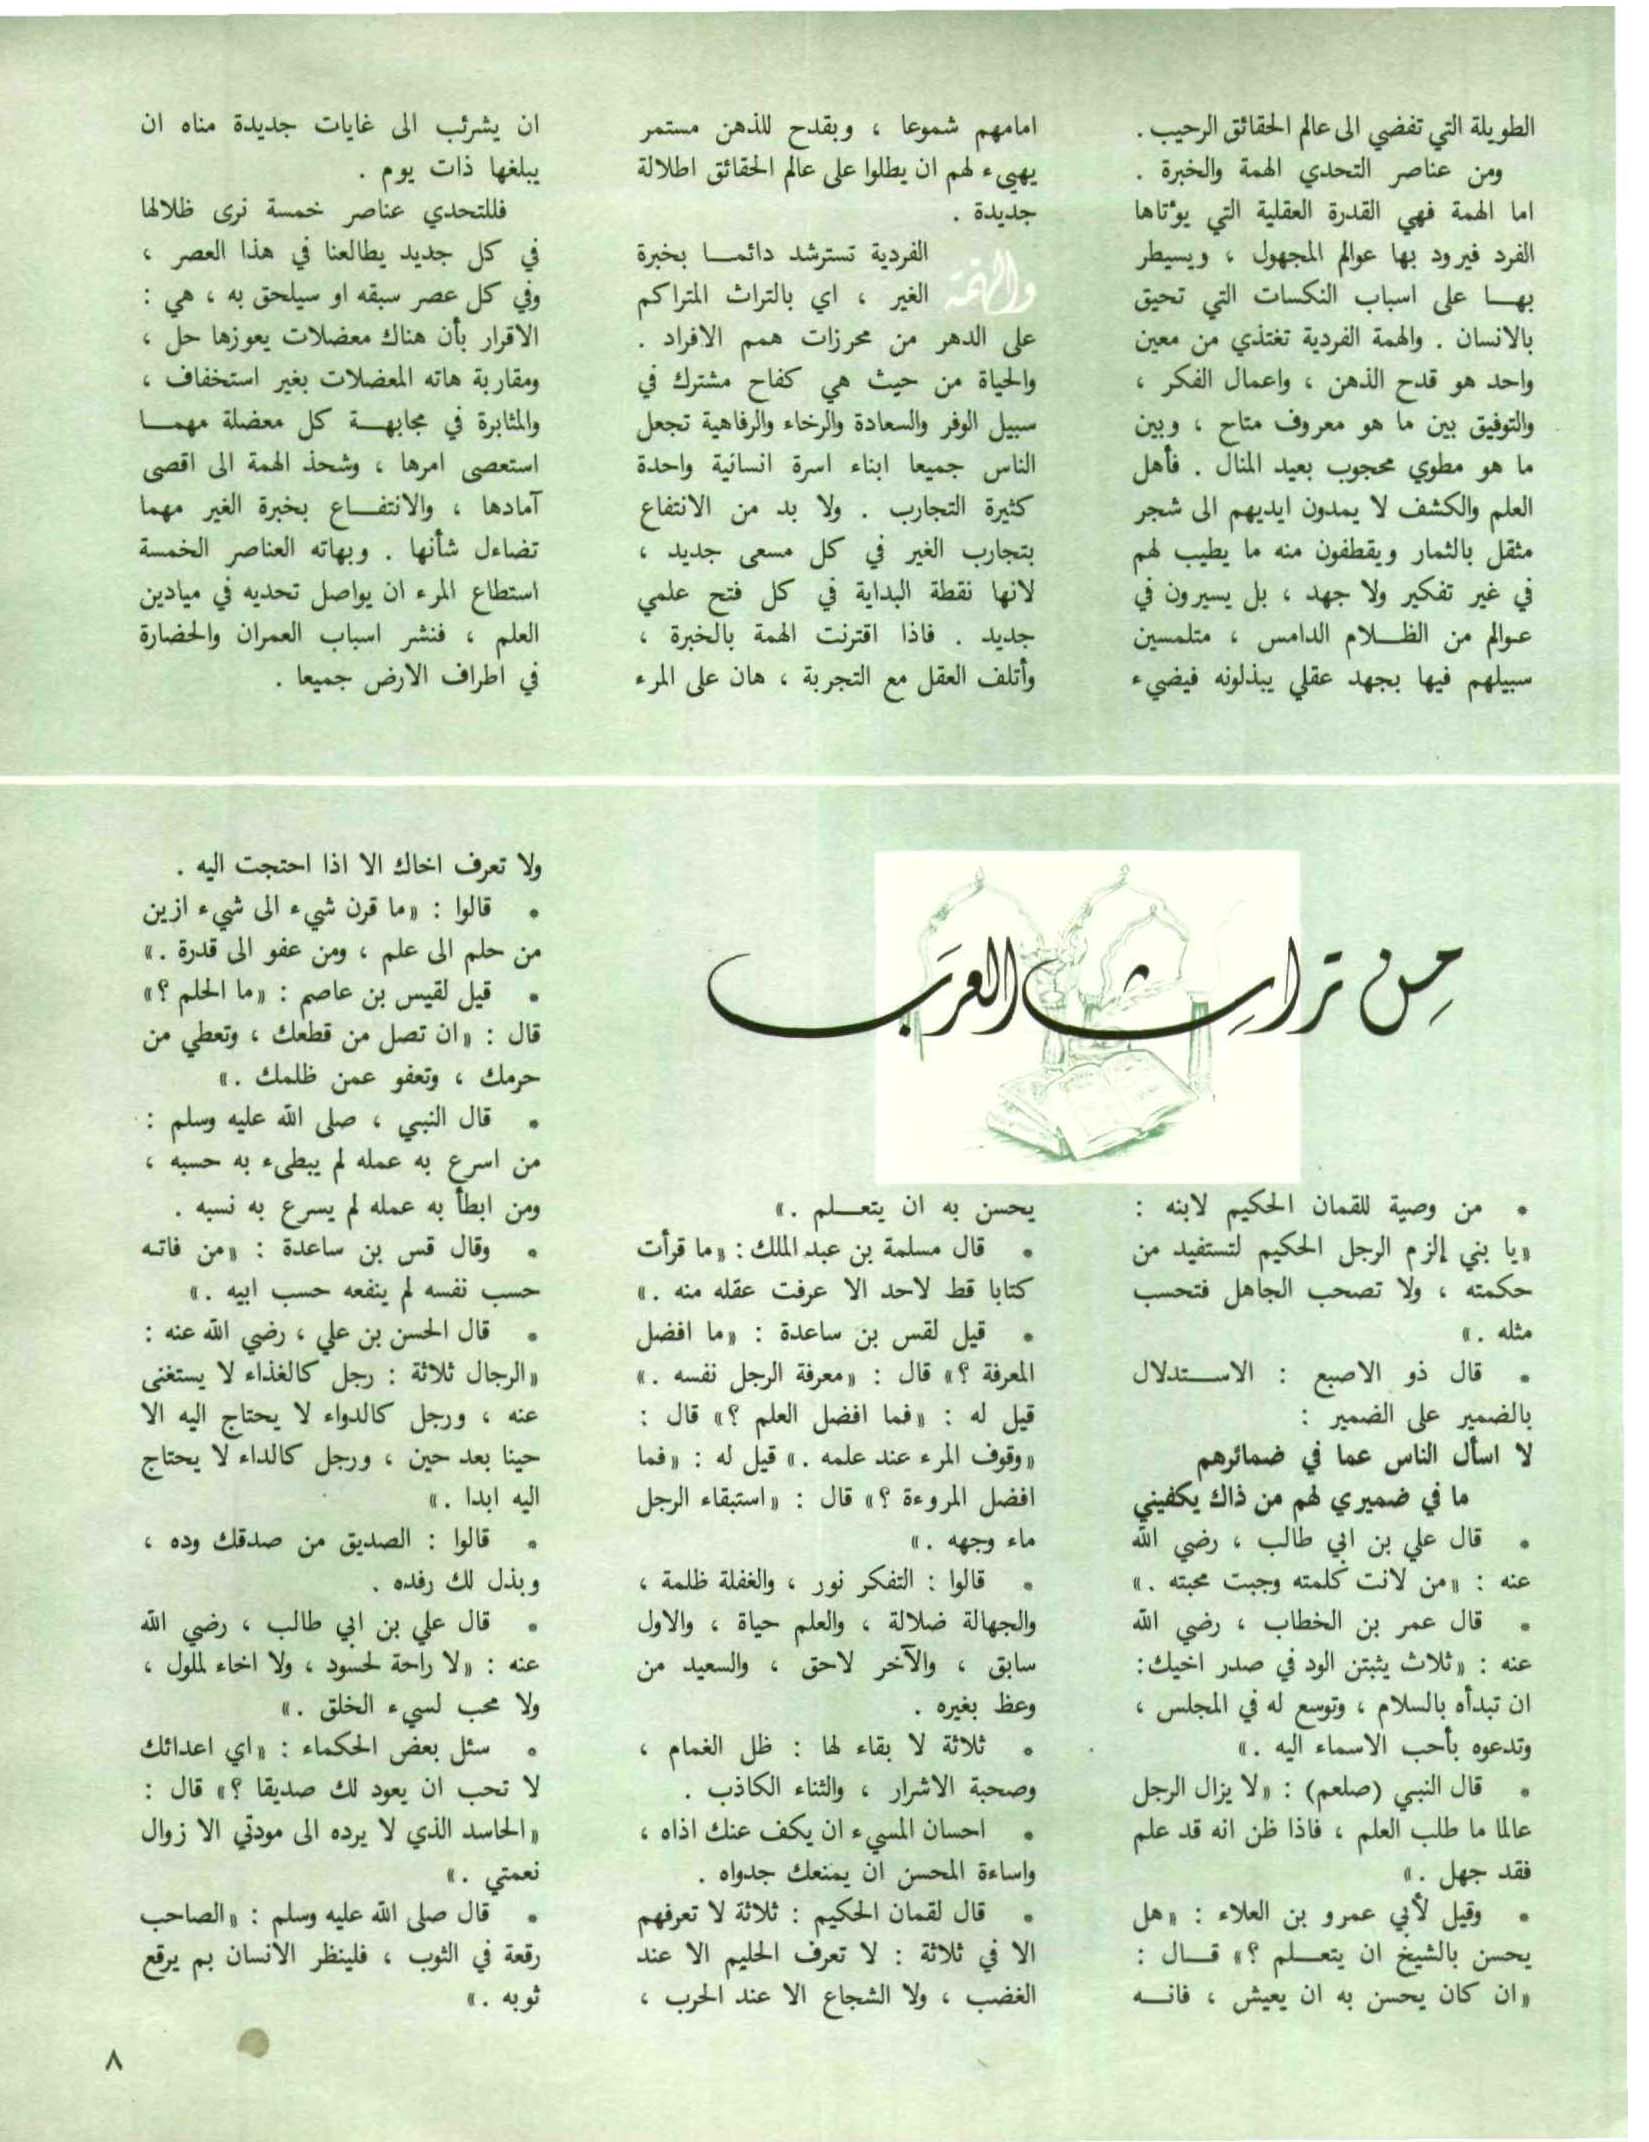 الطويلة التي تفضي الى عالم الحقائق الرحيب .
ومن عناصر التحدي الهمة والخبرة .
اما الهمة فهي القدرة العقلية التي يؤتاها
الفرد فيرود بها عوالم المجهول ، ويسيطر
بهـــا على اسباب النكسات التي تحيق
بالانسان . والهمة الفردية تغتذي من معين
واحد هو قدح الذهن ، واعمال الفكر ،
والتوفيق بين ما هو معروف متاح ، وبين
ما هو مطوي محجوب بعيد المنال . فأهل
العلم والكشف لا يمدون ايديهم الى شجر
مثقل بالثمار ويقطفون منه ما يطيب لهم
في غير تفكير ولا جهد ، بل يسيرون في
عوالم من الظـــلام الدامس ، متلمسين
سبيلهم فيها بجهد عقلي يبذلونه فيضيء
امامهم شموعا ، وبقدح للذهن مستمر
يهيىء لهم ان يطلوا على عالم الحقائق اطلالة
جديدة .
والهمة الفردية تسترشد دائمـــا بخبرة
الغير ، اي بالتراث المتراكم
على الدهر من محرزات همم الافراد .
والحياة من حيث هي كفاح مشترك في
سبيل الوفر والسعادة والرخاء والرفاهية تجعل
الناس جميعا ابناء اسرة انسانية واحدة
كثيرة التجارب . ولا بد من الانتفاع
بتجارب الغير في كل مسعى جديد ،
لانها نقطة البداية في كل فتح علمي
جديد . فاذا اقترنت الهمة بالخبرة ،
وأتلف العقل مع التجربة ، هان على المرء
ان يشرئب الى غايات جديدة مناه ان
يبلغها ذات يوم .
فللتحدي عناصر خمسة نرى ظلالها
في كل جديد يطالعنا في هذا العصر ،
وفي كل عصر سبقه او سيلحق به ، هي :
الاقرار بأن هناك معضلات يعوزها حل ،
ومقاربة هاته المعضلات بغير استخفاف ،
والمثابرة في مجابهـــة كل معضلة مهمـــا
استعصى امرها ، وشحذ الهمة الى اقصى
آمادها ، والانتفـــاع بخبرة الغير مهما
تضاءل شأنها . وبهاته العناصر الخمسة
استطاع المرء ان يواصل تحديه في ميادين
العلم ، فنشر اسباب العمران والحضارة
في اطراف الارض جميعا .
من تراث العرب
• من وصية للقمان الحكيم لابنه :
«يا بني إلزم الرجل الحكيم لتستفيد من
حكمته ، ولا تصحب الجاهل فتحسب
مثله .»
• قال ذو الاصبع : الاســـتدلال
بالضمير على الضمير :
لا اسأل الناس عما في ضمائرهم
ما في ضميري لهم من ذاك يكفيني
• قال علي بن ابي طالب ، رضي الله
عنه : «من لانت كلمته وجبت محبته .»
• قال عمر بن الخطاب ، رضي الله
عنه : «ثلاث يثبتن الود في صدر اخيك:
ان تبدأه بالسلام ، وتوسع له في المجلس ،
وتدعوه بأحب الاسماء اليه .»
• قال النبي (صلعم) : «لا يزال الرجل
عالما ما طلب العلم ، فاذا ظن انه قد علم
فقد جهل .»
• وقيل لأبي عمرو بن العلاء : «هل
يحسن بالشيخ ان يتعـــلم ؟» قـــال :
«ان كان يحسن به ان يعيش ، فانـــه
يحسن به ان يتعـــلم .»
• قال مسلمة بن عبد الملك : «ما قرأت
كتابا قط لاحد الا عرفت عقله منه .»
• قيل لقس بن ساعدة : «ما افضل
المعرفة ؟» قال : «معرفة الرجل نفسه .»
قيل له : «فما افضل العلم ؟» قال :
«وقوف المرء عند علمه .» قيل له : «فما
افضل المروءة ؟» قال : «استبقاء الرجل
ماء وجهه .»
• قالوا : التفكر نور ، والغفلة ظلمة ،
والجهالة ضلالة ، والعلم حياة ، والاول
سابق ، والآخر لاحق ، والسعيد من
وعظ بغيره .
• ثلاثة لا بقاء لها : ظل الغمام ،
وصحبة الاشرار ، والثناء الكاذب .
• احسان المسيء ان يكف عنك اذاه ،
واساءة المحسن ان يمنعك جدواه .
• قال لقمان الحكيم : ثلاثة لا تعرفهم
الا في ثلاثة : لا تعرف الحليم الا عند
الغضب ، ولا الشجاع الا عند الحرب ،
ولا تعرف اخاك الا اذا احتجت اليه .
• قالوا : «ما قرن شيء الى شيء ازين
من حلم الى علم ، ومن عفو الى قدرة .»
• قيل لقيس بن عاصم : «ما الحلم ؟»
قال : «ان تصل من قطعك ، وتعطي من
حرمك ، وتعفو عمن ظلمك .»
• قال النبي ، صلى الله عليه وسلم :
من اسرع به عمله لم يبطىء به حسبه ،
ومن ابطأ به عمله لم يسرع به نسبه .
• وقال قس بن ساعدة : «من فاتـه
حسب نفسه لم ينفعه حسب ابيه .»
• قال الحسن بن علي ، رضي الله عنه :
«الرجال ثلاثة : رجل كالغذاء لا يستغنى
عنه ، ورجل كالدواء لا يحتاج اليه الا
حينا بعد حين ، ورجل كالداء لا يحتاج
اليه ابدا .»
• قالوا : الصديق من صدقك وده ،
وبذل لك رفده .
• قال علي بن ابي طالب ، رضي الله
عنه : «لا راحة لحسود ، ولا اخاء لملول ،
ولا محب لسيء الخلق .»
• سئل بعض الحكماء : «اي اعدائك
لا تحب ان يعود لك صديقا ؟» قال :
«الحاسد الذي لا يرده الى مودتي الا زوال
نعمتي .»
• قال صلى الله عليه وسلم : «الصاحب
رقعة في الثوب ، فلينظر الانسان بم يرقع
ثوبه .»
٨